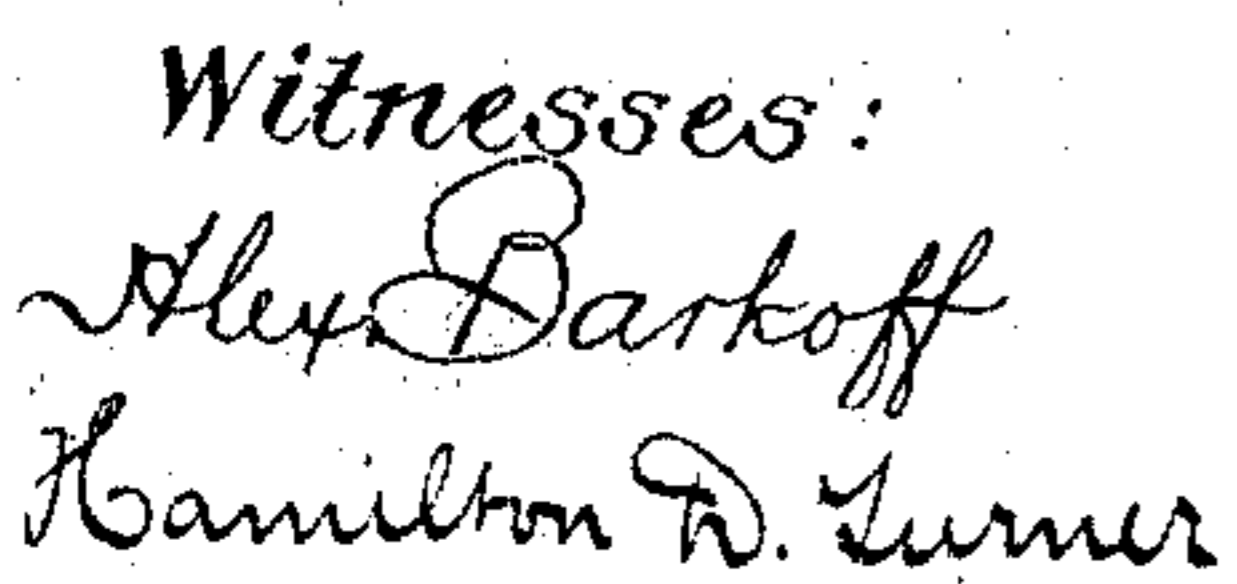 Witnesses:
Alex. Barkoff
Hamilton D. Turner